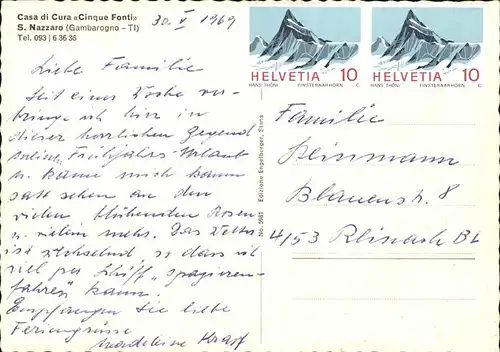 Casa di Cura «Cinque Fonti»
S. Nazzaro (Gambarogno – TI)
Tel. 093 | 6 36 36
30. V 1969
HELVETIA 10
HANS THÖNI FINSTERAARHORN C.
HELVETIA 10
HANS THÖNI FINSTERAARHORN C.
Liebe Familie
Seit einer Woche ver-
bringe ich hier in
dieser herrlichen Gegend
meinen Frühjahrs-Urlaub
u. kann mich kaum
satt sehen an den
vielen blühenden Rosen
u. vielem mehr. Das Wetter
ist wechselnd, so dass ich
viel per Schiff „spazieren-
fahren" kann.
Empfangen Sie liebe
Feriengrüsse
Madeleine Krast
No. 5981 Edizione Engelberger, Stans
Familie
Heinimann
Blauenstr. 8
4153 Reinach BL